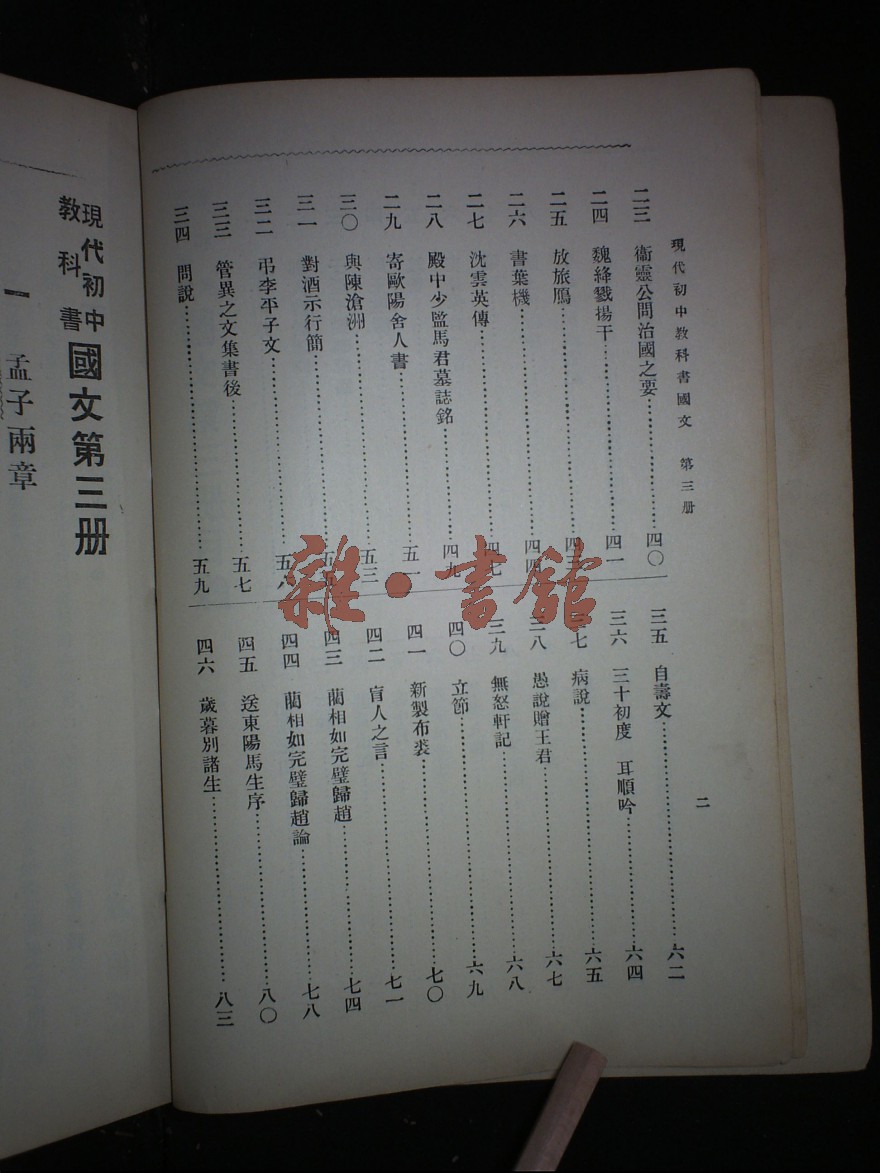 現代初中教科書國文 第三册
二
二三 衞靈公問治國之要 四〇
二四 魏絳戮揚干 四一
二五 放旅鴈 四三
二六 書葉機 四四
二七 沈雲英傳 四七
二八 殿中少監馬君墓誌銘 四九
二九 寄歐陽舍人書 五
三〇 與陳滄洲 五三
三一 對酒示行簡
三二 弔李平子文 五八
三三 管異之文集書後 五七
三四 問說 五九
三五 自壽文 六二
三六 三十初度 耳順吟 六四
三七 病說 六五
三八 愚說贈王君 六七
三九 無怒軒記 六八
四〇 立節 六九
四一 新製布裘 七〇
四二 盲人之言 七一
四三 藺相如完璧歸趙 七四
四四 藺相如完璧歸趙論 七八
四五 送東陽馬生序 八〇
四六 歲暮別諸生 八三
雜·書館
現代初中
教科書
國文第三册
一 孟子兩章